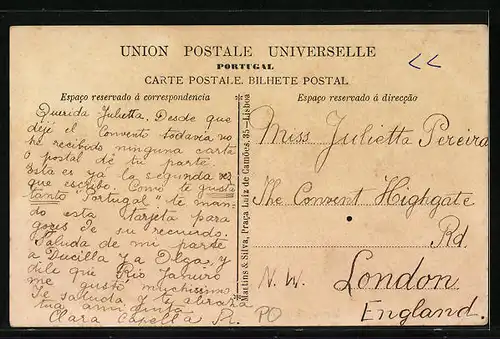 UNION POSTALE UNIVERSELLE
PORTUGAL
CARTE POSTALE. BILHETE POSTAL
Espaço reservado á correspondencia
Espaço reservado á direcção
Querida Julietta. Desde que
dejé el Convento todavia no
he recibido ninguna carta
o postal de tu parte.
Esta es ya la segunda vez
que escribo. Como te gusta
tanto "Portugal" te man-
do esta tarjeta para
goges de su recuerdo.
Saluda de mi parte
a Ducilla y a Olga, y
dile que Rio Janiro
me gustó muchissimo
Te saluda y te abraza
tua amiguita
Clara Capella R.
Martins & Silva, Praça Luiz de Camões, 35—Lisboa
Miss Julietta Pereira
The Convent Highgate
Rd.
N. W. London
England.
PO